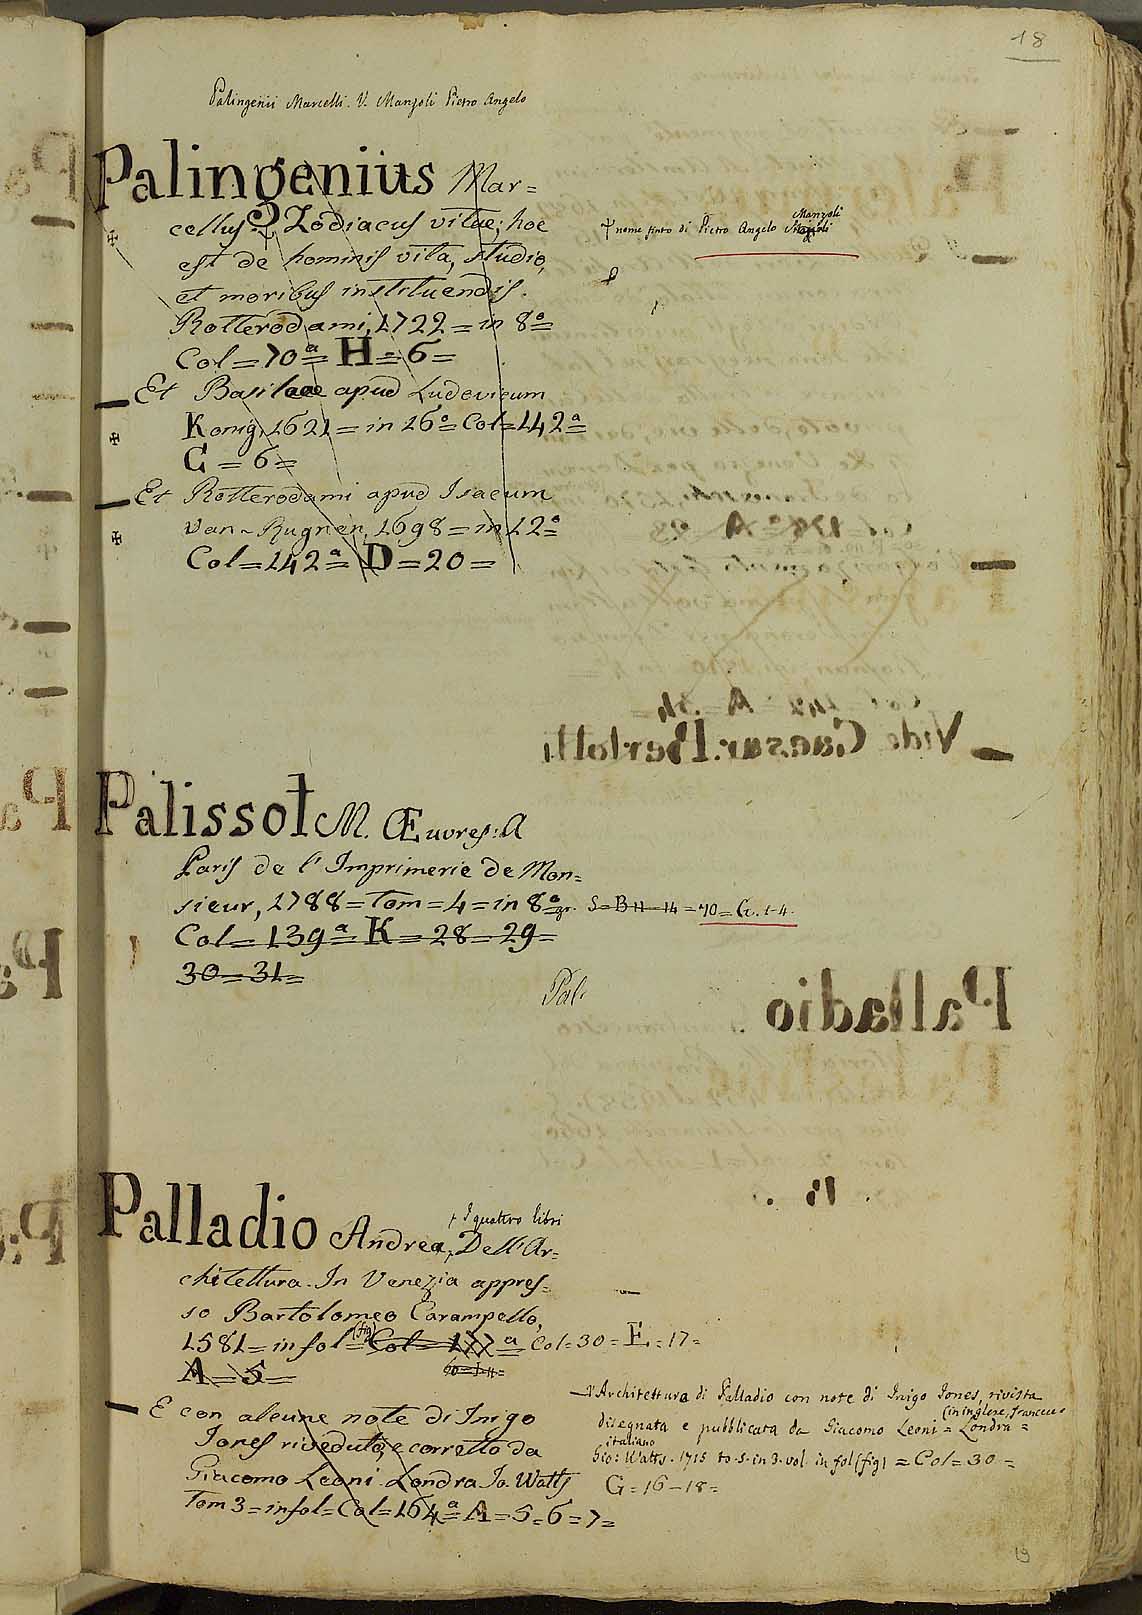 18
Palingenii Marcelli. V. Manzoli Pietro Angelo
Palingenius Mar=
cellus. Zodiacus vitae; hoc
est de hominis vita, studio,
et moribus instituendis.
Rotterodami, 1722 = in 8º=
Col = 70ª = H = 6 =
nome finto di Pietro Angelo
Manzoli
Et Basileae apud Ludovicum
Konig, 1621 = in 16º = Col = 142ª =
C = 6 =
Et Rotterodami apud Isacum
Van-Rugnen, 1698 = in 12º
Col = 142ª = D = 20 =
Palissot M. Œuvres: A
Paris de l'Imprimerie de Mon=
sieur, 1788 = Tom = 4 = in 8º gr. S = B 11 - 14 = 70 = G. 1-4.
Col = 139ª = K = 28 = 29 =
30 = 31 =
Pal.
Palladio Andrea, Dell'Ar=
+ I quattro libri
chitettura. In Venezia appres=
so Bartolomeo Carampello,
1581 = in fol = (fig) Col = 177ª = Col = 30 = E = 17 =
A = 5 =
E con alcune note di Inigo
Jones riveduto, e corretto da
Giacomo Leoni. Londra Io. Watts
Tom 3 = in fol = Col = 164ª = A = 5 = 6 = 7 =
l'Architettura di Palladio con note di Inigo Jones, rivista
disegnata e pubblicata da Giacomo Leoni = Londra =
(in inglese, francese
italiano
Gio: Watts. 1715 to. 5. in 3. vol. in fol (fig) = Col = 30 =
G = 16 - 18 =
19